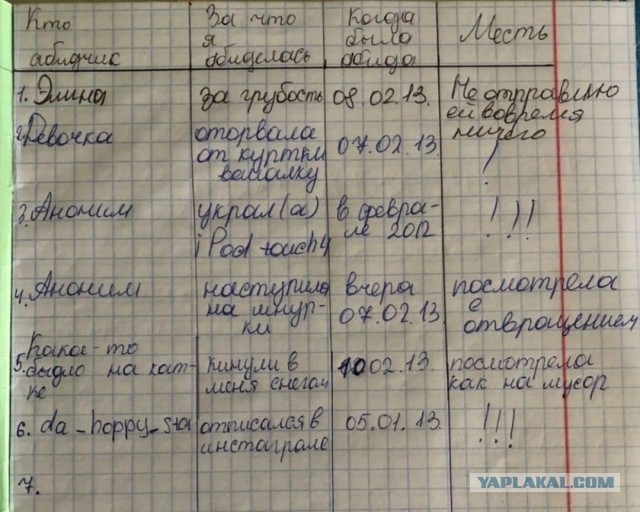 Кто абидчик | За что я абиделась | Когда была абида | Месть
1. Элина | за грубость | 08.02.13. | Не отправлю ей вовремя ничего
2. Девочка | оторвала от куртки вешалку | 07.02.13. | !
3. Аноним | украл(а) iPod touch 4 | в феврале 2012 | !!!
4. Аноним | наступила на шнурки | вчера 07.02.13 | посмотрела с отвращением
5. Какое-то быдло на катке | кинули в меня снегом | 10 02.13. | посмотрела как на мусор
6. da_happy_sta | отписался в инстаграме | 05.01.13. | !!!
7.
YAPLAKAL.COM